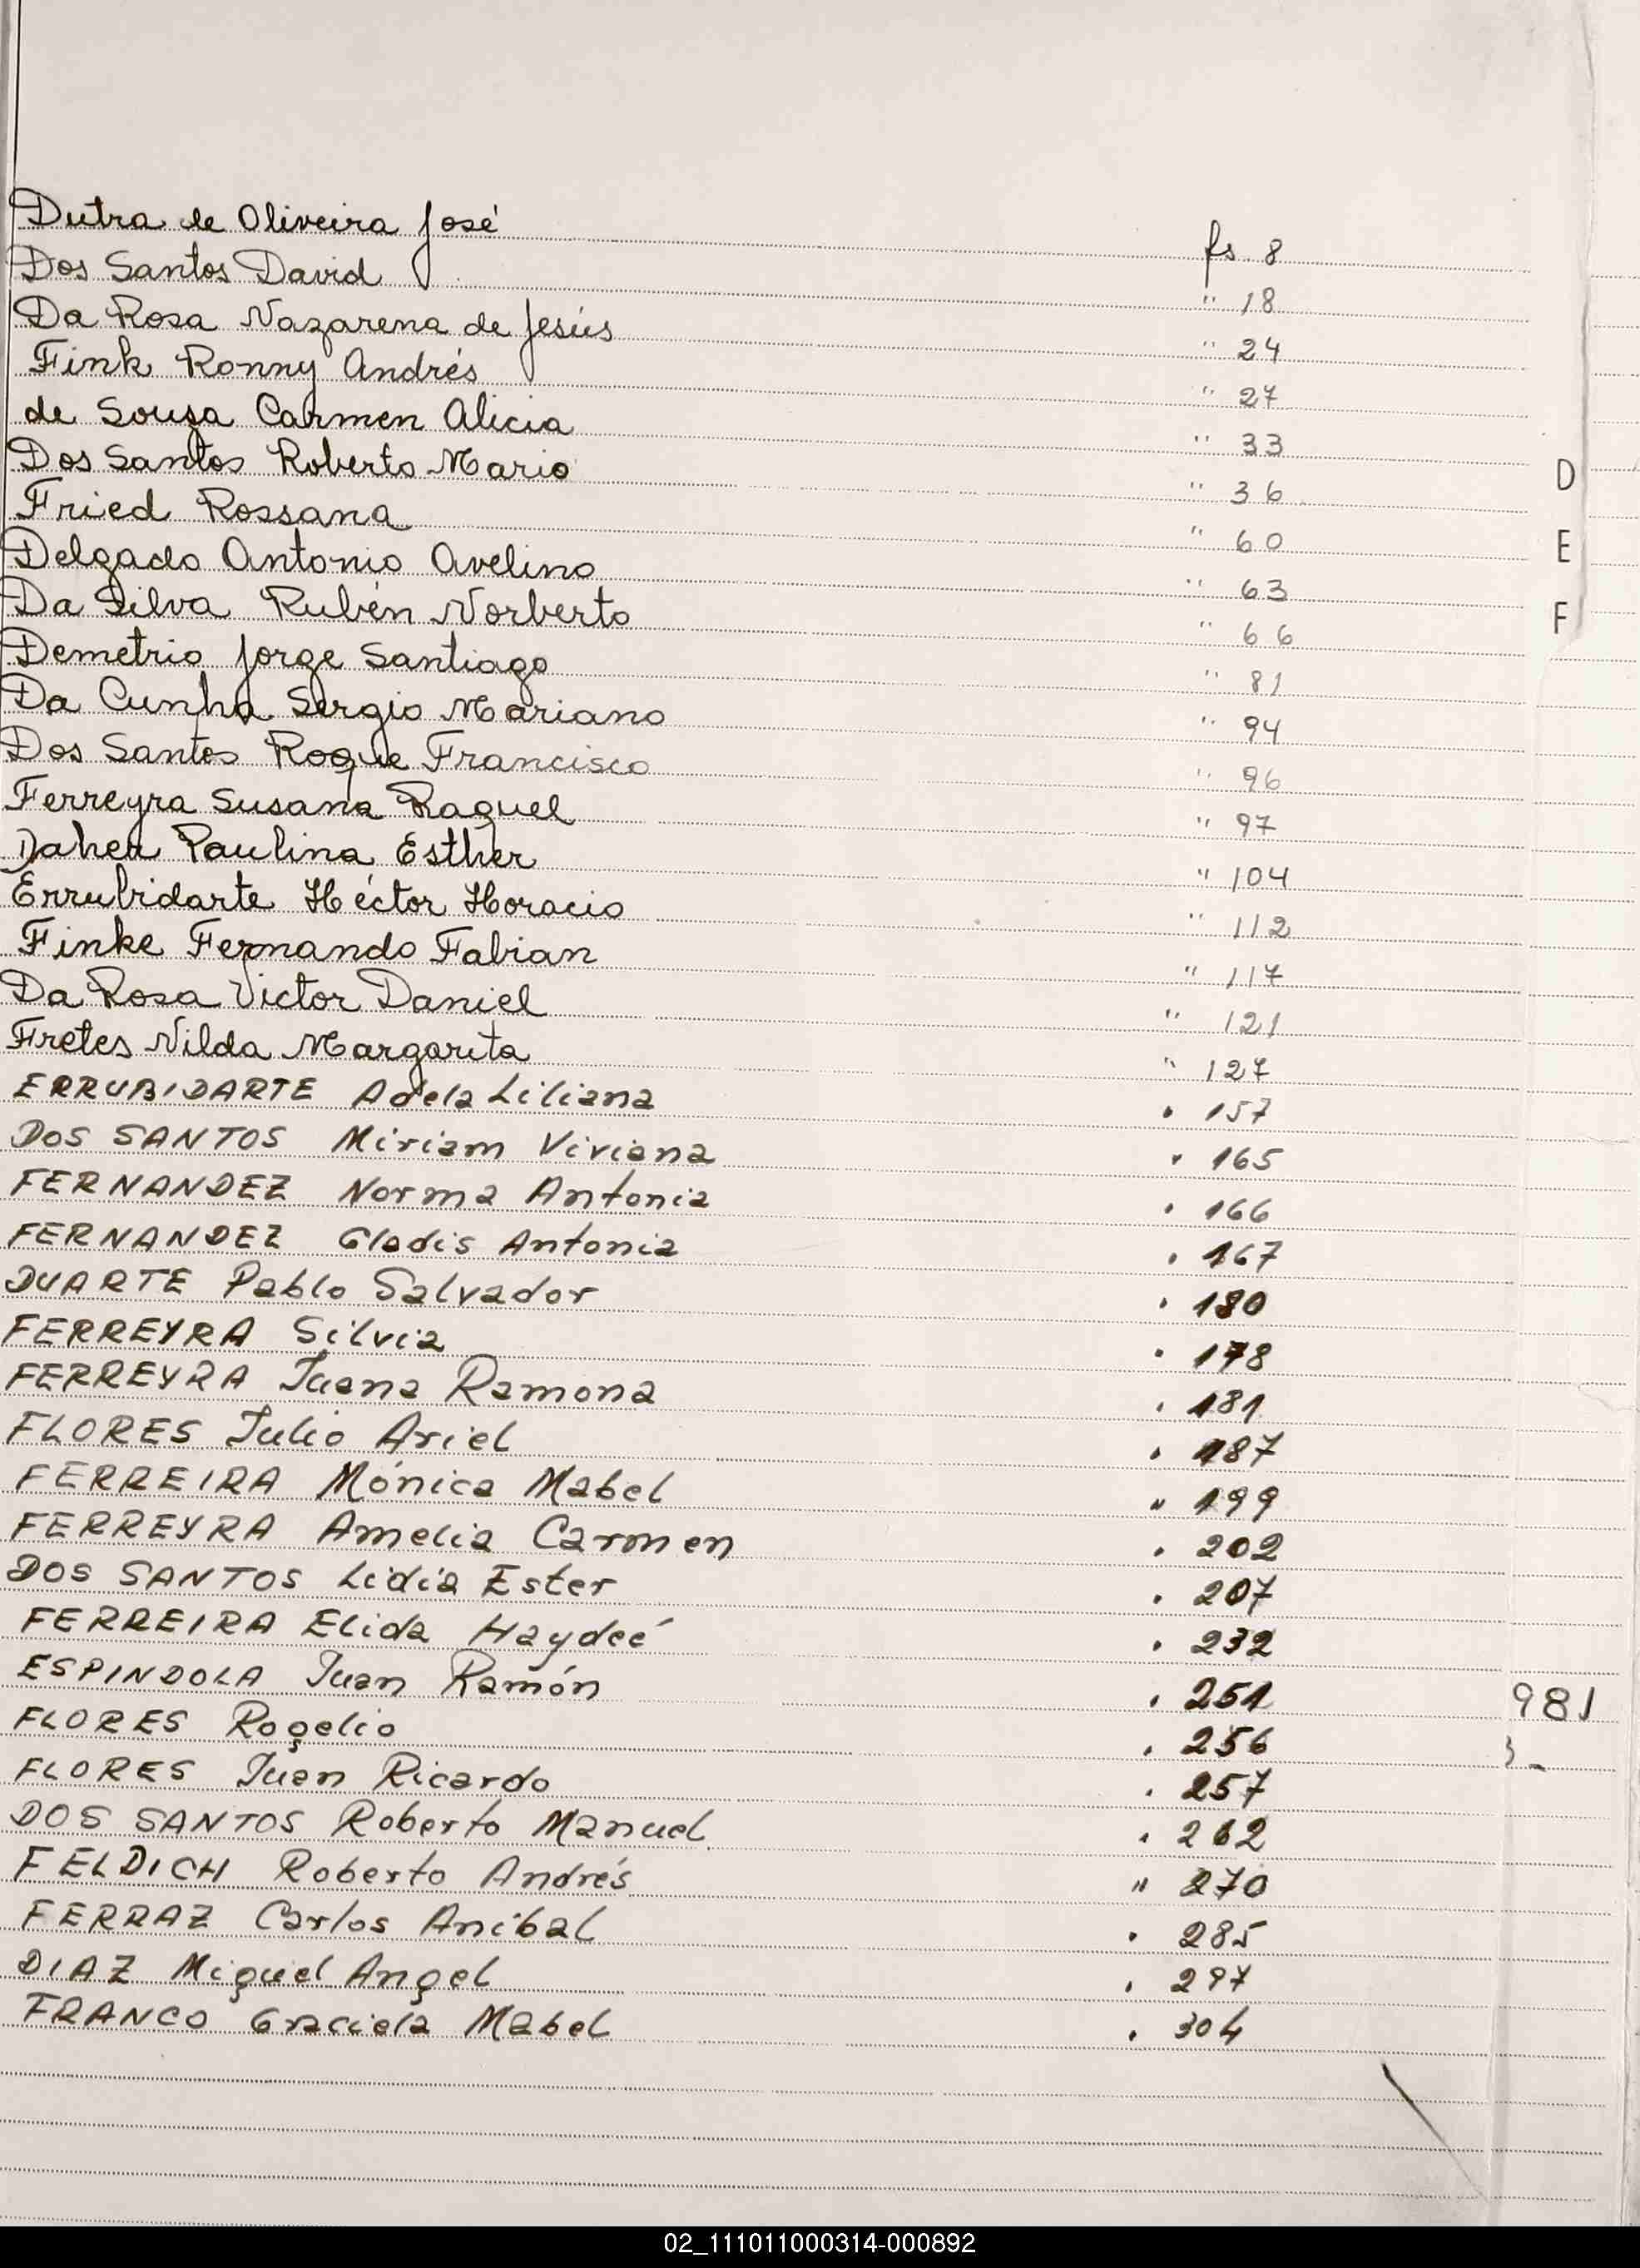 Dutra de Oliveira José fs. 8
Dos Santos David " 18
Da Rosa Nazarena de Jesús " 24
Fink Ronny Andrés " 27
de Souza Carmen Alicia " 33
Dos Santos Roberto Mario " 36
D
Fried Rossana " 60
E
Delgado Antonio Avelino " 63
F
Da Silva Rubén Norberto " 66
Demetrio Jorge Santiago " 81
Da Cunha Sergio Mariano " 94
Dos Santos Roque Francisco " 96
Ferreyra Susana Raquel " 97
Dahen Paulina Esther " 104
Errubidarte Héctor Horacio " 112
Finke Fernando Fabian " 117
Da Rosa Victor Daniel " 121
Fretes Nilda Margarita " 127
ERRUBIDARTE Adela Liliana " 157
DOS SANTOS Miriam Viviana " 165
FERNANDEZ Norma Antonia " 166
FERNANDEZ Gladis Antonia " 167
DUARTE Pablo Salvador " 180
FERREYRA Silvia " 178
FERREYRA Juana Ramona " 181
FLORES Julio Ariel " 187
FERREIRA Mónica Mabel " 199
FERREYRA Amelia Carmen " 202
DOS SANTOS Lidia Ester " 207
FERREIRA Elida Haydeé " 232
ESPINDOLA Juan Ramón " 251
981
FLORES Rogelio " 256
FLORES Juan Ricardo " 257
DOS SANTOS Roberto Manuel " 262
FELDICH Roberto Andrés " 270
FERRAZ Carlos Anibal " 285
DIAZ Miguel Angel " 297
FRANCO Graciela Mabel " 304
02_111011000314-000892